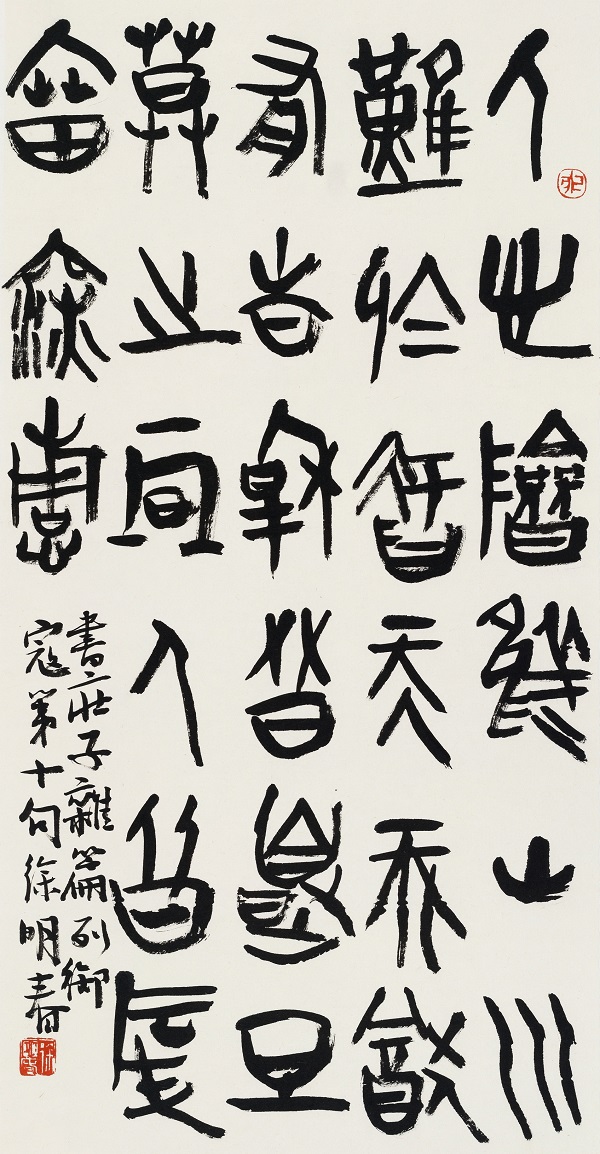 人心險於山川
難於知天天猶
有春秋冬夏旦
暮之期人者厚
貌深情
書莊子雜篇列御
寇第十句徐明春